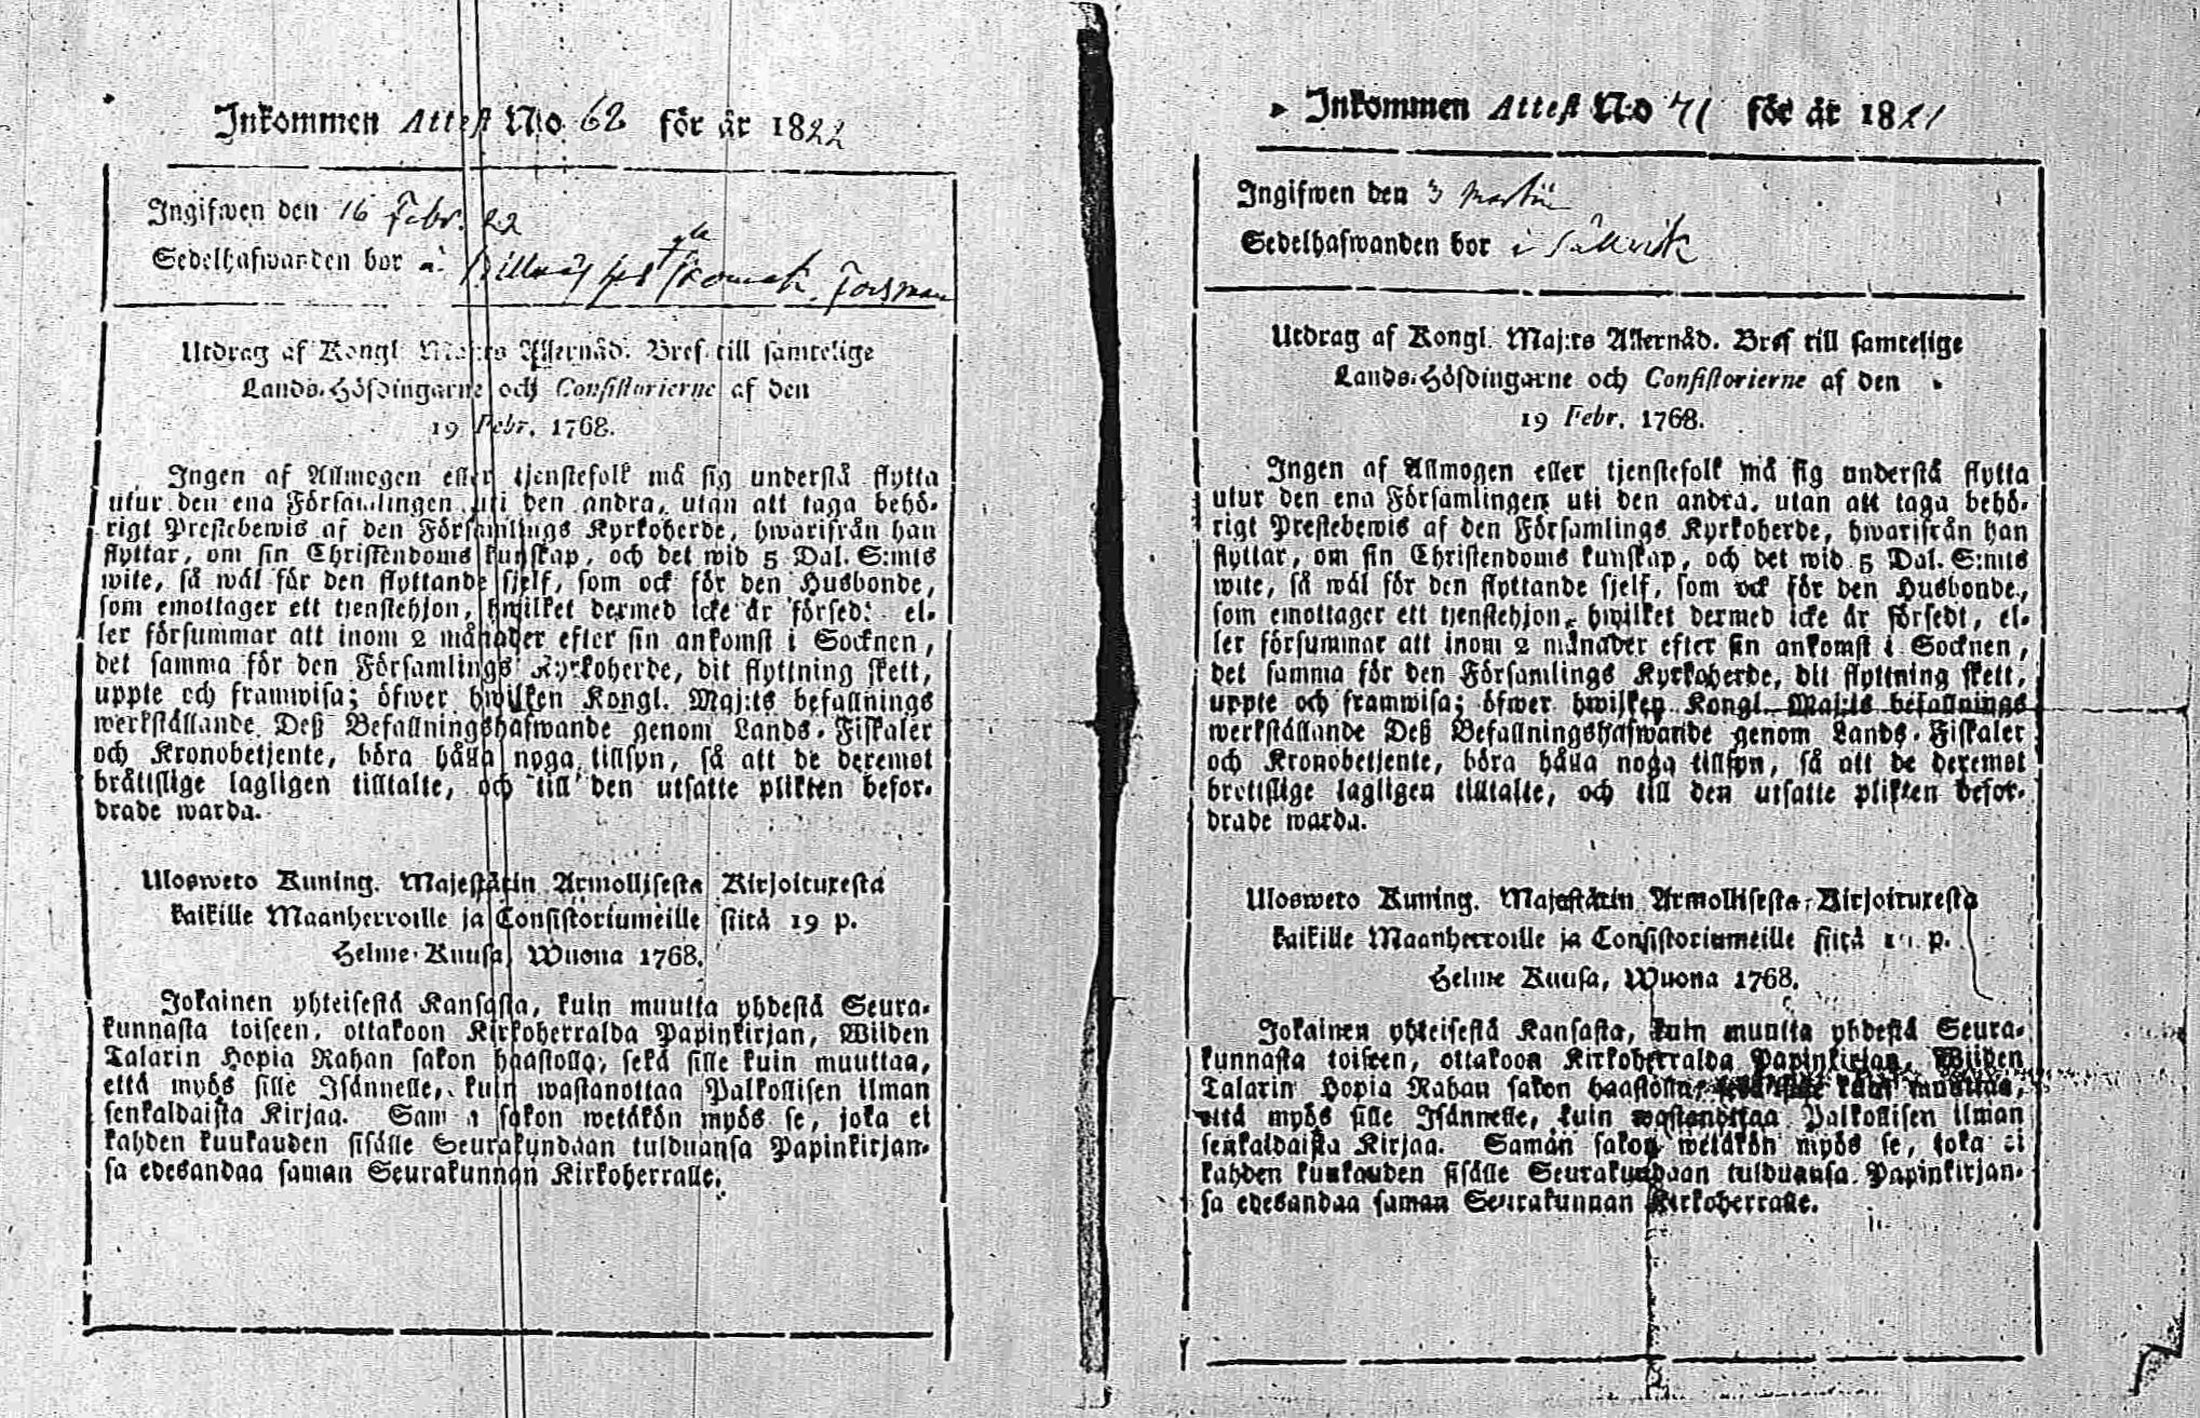 Inkommen Attest N:o 62 för år 1822
Ingifwen den 16 Febr. 22
Sedelhafwanden bor å
Utdrag af Kongl. Maj:ts Allernåd. Bref till samtelige
Lands-Höfdingarne och Consistorierne af den
19 Febr. 1768.
Ingen af Allmogen eller tjenstefolk må sig understå flytta
utur den ena Församlingen uti den andra, utan att taga behö-
rigt Prestebewis af den Församlings Kyrkoherde, hwarifrån han
flyttar, om sin Christendoms kunskap, och det wid 5 Dal. S:mts
wite, så wäl för den flyttande sjelf, som ock för den Husbonde,
som emottager ett tjenstehjon, hwilket dermed icke är försedt, el-
ler försummar att inom 2 månader efter sin ankomst i Socknen,
det samma för den Församlings Kyrkoherde, dit flyttning skett,
uppte och framwisa; öfwer hwilken Kongl. Maj:ts befallnings
werkställande Deß Befallningshafwande genom Lands-Fiskaler
och Kronobetjente, böra hålla noga tillsyn, så att de deremot
brättslige lagligen tilltalte, och till den utsatte plikten befor-
drade warda.
Ulosweto Kuning. Majestätin Armollisesta Kirjoituxesta
kaikille Maanherroille ja Consistoriumeille siitä 19 p.
Helme-Kuusa, Wuona 1768.
Jokainen yhteisestä Kansasta, kuin muutta yhdestä Seura-
kunnasta toiseen, ottakoon Kirkoherralda Papinkirjan, Wiiden
Talarin Hopia Rahan sakon haastolla, sekä sille kuin muuttaa,
että myös sille Isännelle, kuin wastanottaa Palkollisen ilman
senkaldaista Kirjaa. Saman sakon wetäkön myös se, joka ei
kahden kuukauden sisälle Seurakundaan tulduansa Papinkirjan-
sa edesandaa saman Seurakunnan Kirkoherralle.
Inkommen Attest N:o 71 för år 1821
Ingifwen den 3 Martii
Sedelhafwanden bor i
Utdrag af Kongl. Maj:ts Allernåd. Bref till samtelige
Lands-Höfdingarne och Consistorierne af den
19 Febr. 1768.
Ingen af Allmogen eller tjenstefolk må sig understå flytta
utur den ena Församlingen uti den andra, utan att taga behö-
rigt Prestebewis af den Församlings Kyrkoherde, hwarifrån han
flyttar, om sin Christendoms kunskap, och det wid 5 Dal. S:mts
wite, så wäl för den flyttande sjelf, som ock för den Husbonde,
som emottager ett tjenstehjon, hwilket dermed icke är försedt, el-
ler försummar att inom 2 månader efter sin ankomst i Socknen,
det samma för den Församlings Kyrkoherde, dit flyttning skett,
uppte och framwisa; öfwer hwilken Kongl. Maj:ts befallnings
werkställande Deß Befallningshafwande genom Lands-Fiskaler
och Kronobetjente, böra hålla noga tillsyn, så att de deremot
brottslige lagligen tilltalte, och till den utsatte plikten befor-
drade warda.
Ulosweto Kuning. Majestätin Armollisesta Kirjoituxesta
kaikille Maanherroille ja Consistoriumeille siitä 19 p.
Helme Kuusa, Wuona 1768.
Jokainen yhteisestä Kansasta, kuin muutta yhdestä Seura-
kunnasta toiseen, ottakoon Kirkoherralda Papinkirjan, Wiiden
Talarin Hopia Rahan sakon haastolla, sekä sille kuin muuttaa,
että myös sille Isännelle, kuin wastanottaa Palkollisen ilman
senkaldaista Kirjaa. Saman sakon wetäkön myös se, joka ei
kahden kuukauden sisälle Seurakundaan tulduansa Papinkirjan-
sa edesandaa saman Seurakunnan Kirkoherralle.